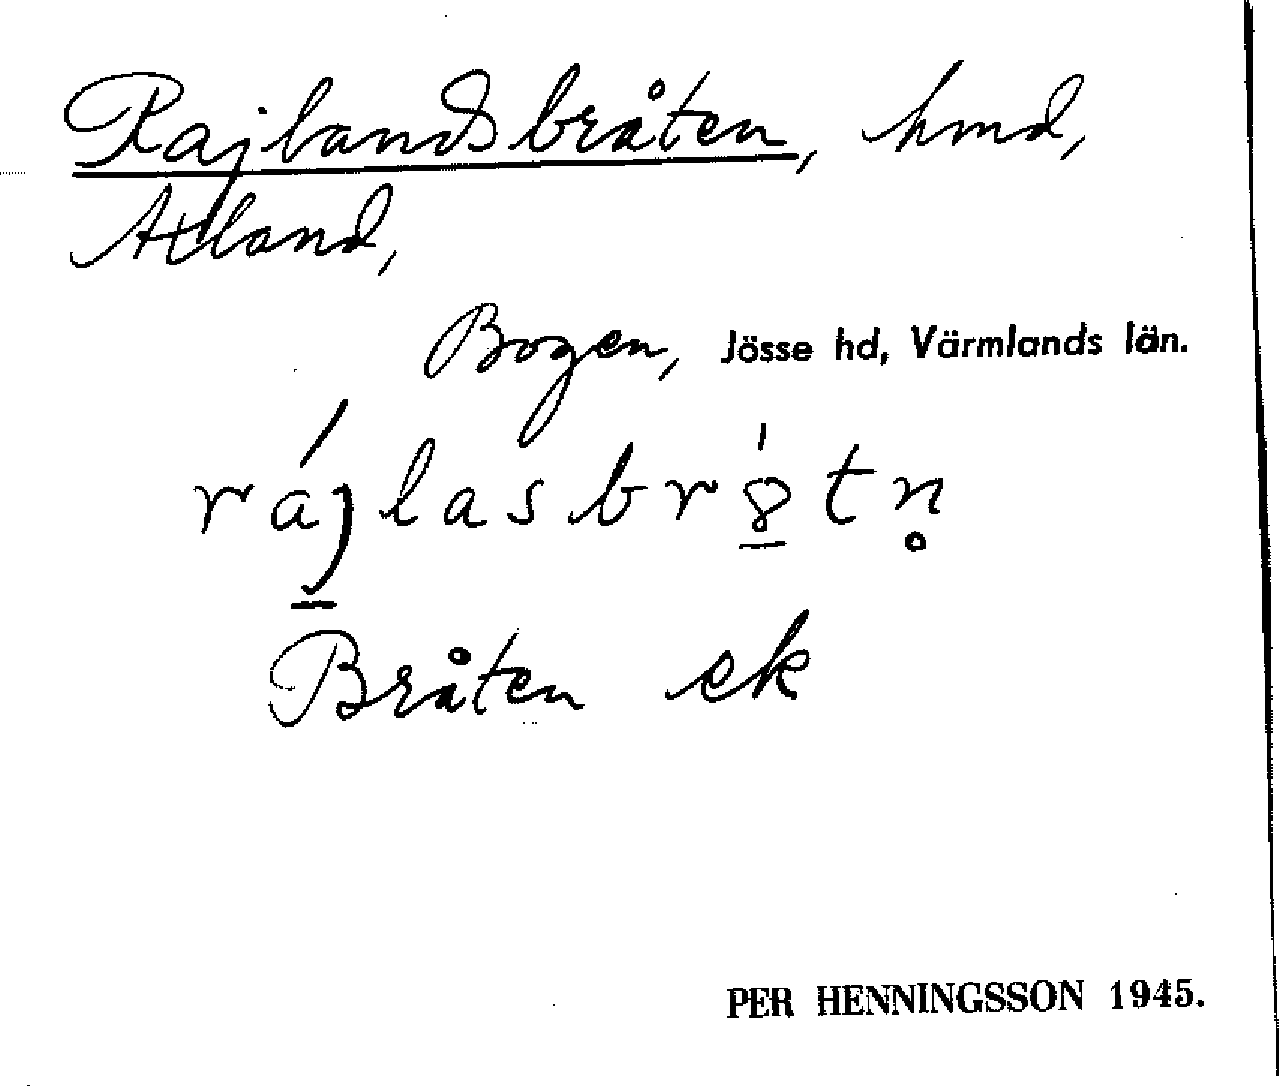 Rajlandsbråten, hmd,
Atland,
Bogen, Jösse hd, Värmlands län.
rájlasbr8́tn̥
Bråten ek
PER HENNINGSSON 1945.